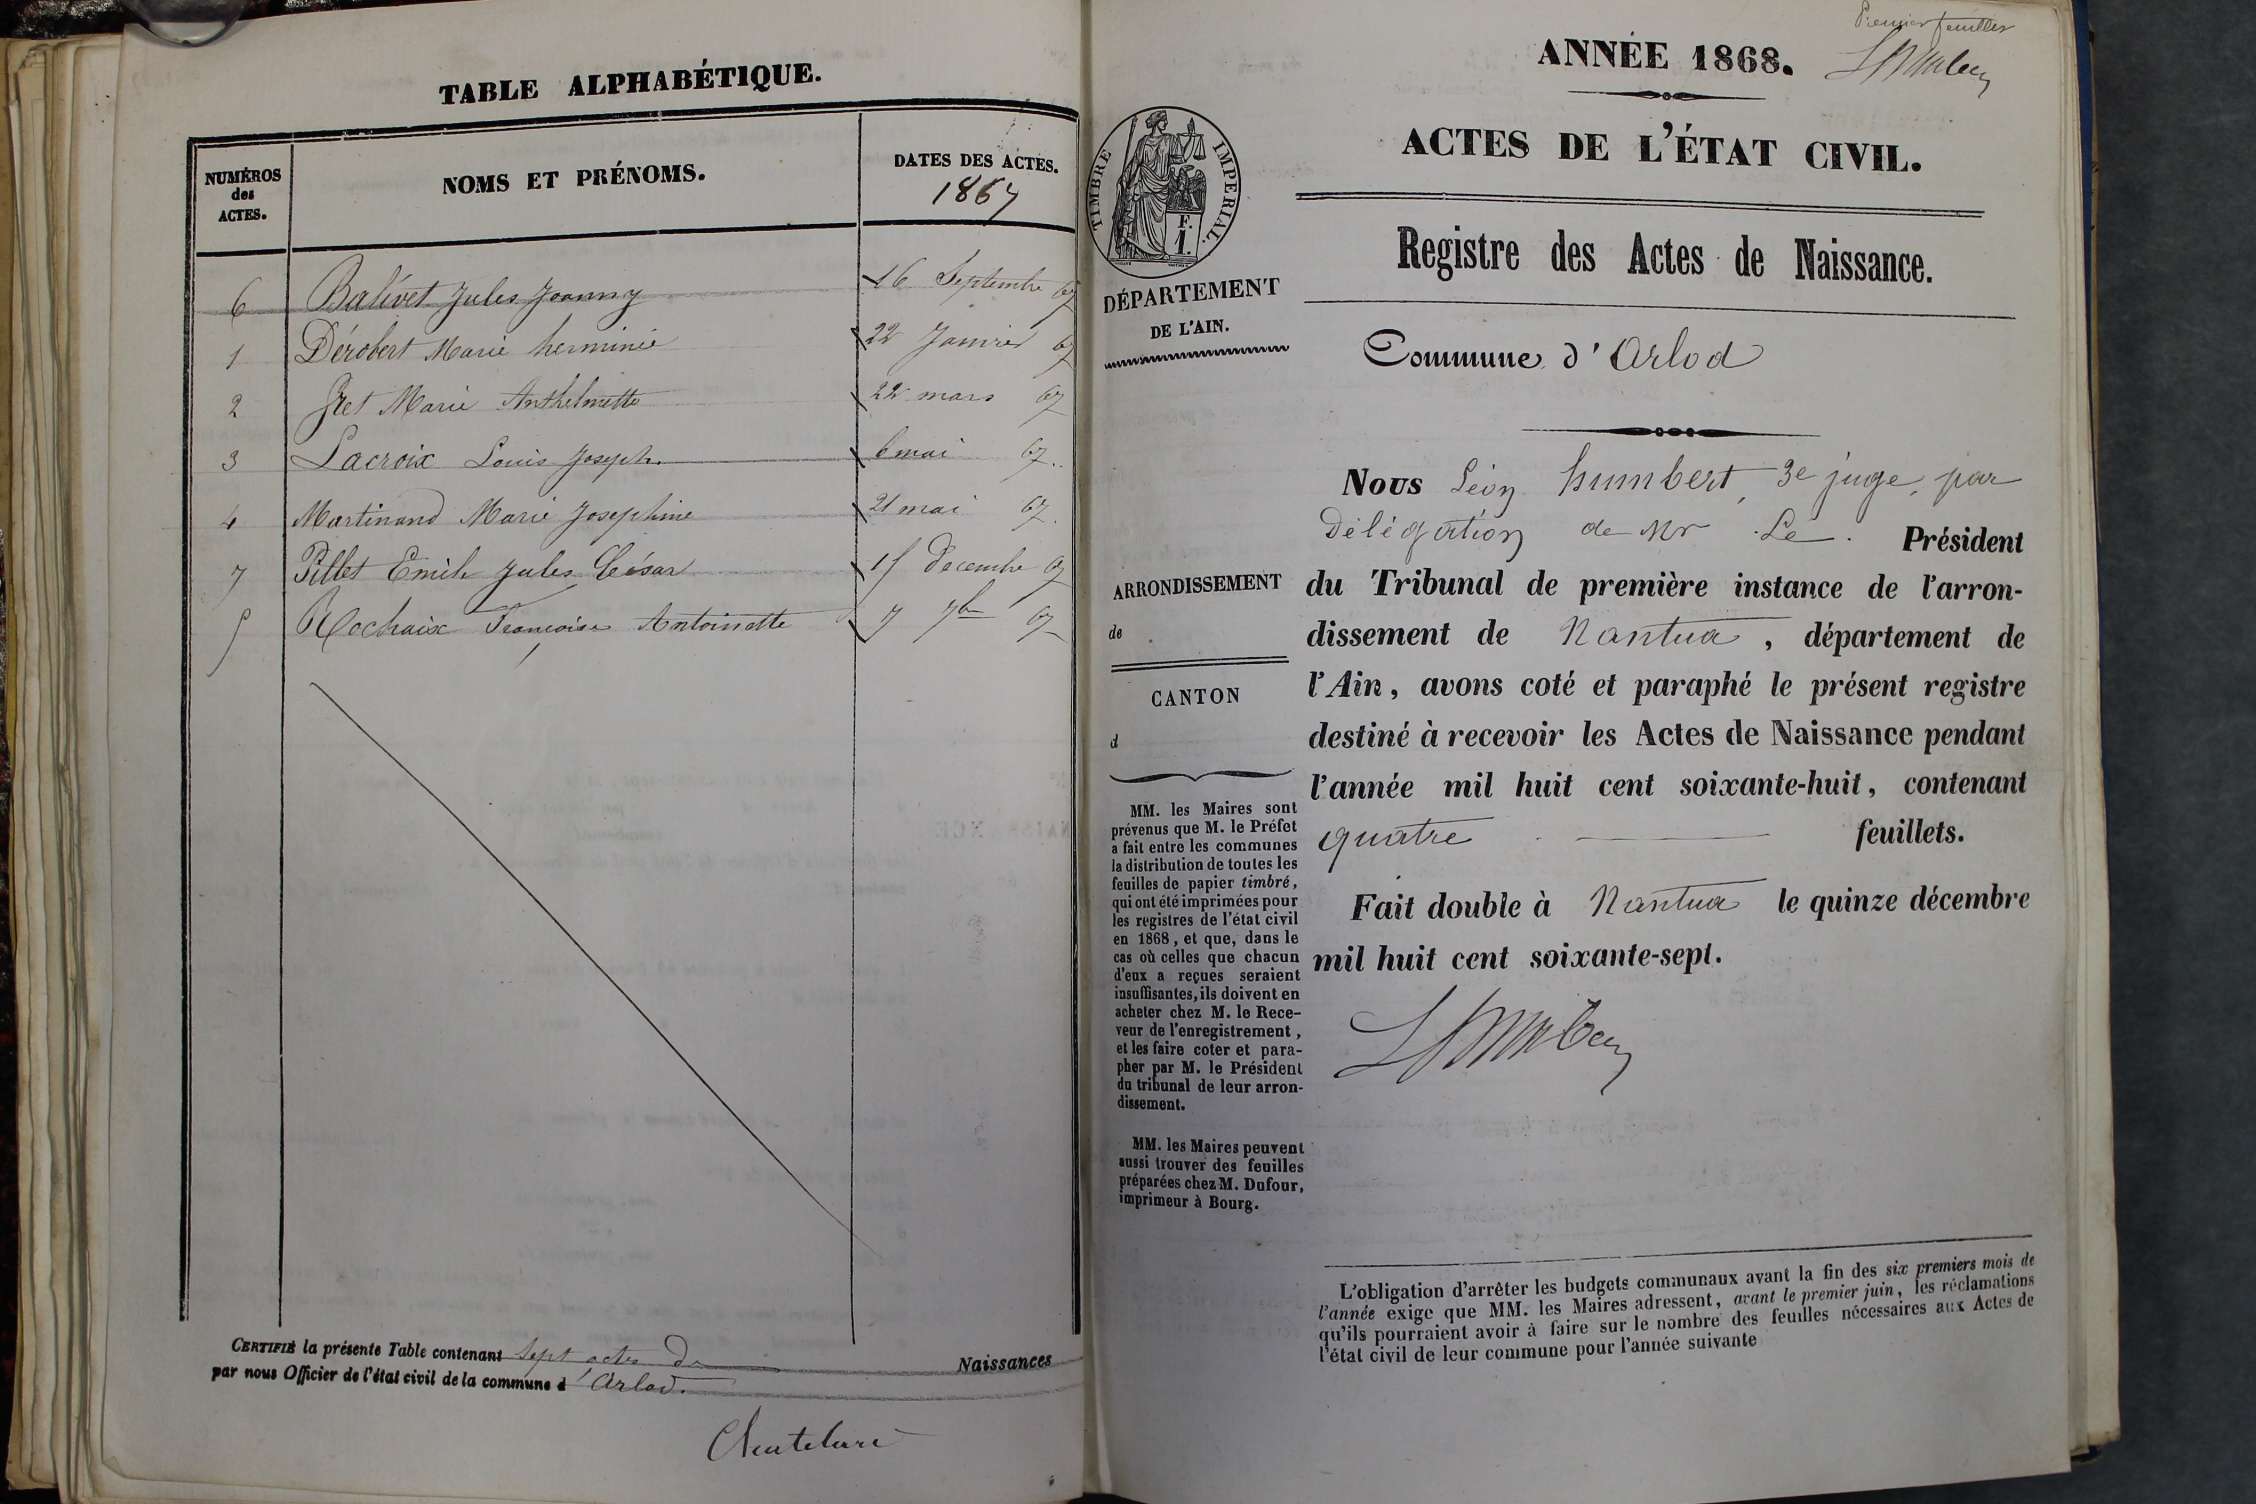 TABLE ALPHABÉTIQUE.
NUMÉROS
des
ACTES.
NOMS ET PRÉNOMS.
DATES DES ACTES.
1867
6 Balivet Jules Joanny 16 Septembre 67
1 Dérobert Marie herminie 22 Janvier 67
2 Gret Marie Anthelmette 22 mars 67
3 Lacroix Louis Joseph. 6 mai 67.
4 Martinand Marie Josephine 21 mai 67.
7 Pillet Emile Jules César 15 decembre 67
5 Rochaix Françoise Antoinette 7 7bre 67
CERTIFIÉ la présente Table contenant Sept actes de Naissances
par nous Officier de l'état civil de la commune d'Arlod.
Premier feuillet
ANNÉE 1868.
ACTES DE L'ÉTAT CIVIL.
TIMBRE IMPERIAL.
F.
1.
Registre des Actes de Naissance.
DÉPARTEMENT
DE L'AIN.
Commune d'Arlod
Nous Léon humbert, 3e juge, par
Délégation de Mr Le Président
du Tribunal de première instance de l'arron-
dissement de Nantua, département de
l'Ain, avons coté et paraphé le présent registre
destiné à recevoir les Actes de Naissance pendant
l'année mil huit cent soixante-huit, contenant
quatre feuillets.
Fait double à Nantua le quinze décembre
mil huit cent soixante-sept.
ARRONDISSEMENT
de
CANTON
d
MM. les Maires sont
prévenus que M. le Préfet
a fait entre les communes
la distribution de toutes les
feuilles de papier timbré,
qui ont été imprimées pour
les registres de l'état civil
en 1868, et que, dans le
cas où celles que chacun
d'eux a reçues seraient
insuffisantes, ils doivent en
acheter chez M. le Rece-
veur de l'enregistrement,
et les faire coter et para-
pher par M. le Président
du tribunal de leur arron-
dissement.
MM. les Maires peuvent
aussi trouver des feuilles
préparées chez M. Dufour,
imprimeur à Bourg.
L'obligation d'arrêter les budgets communaux avant la fin des six premiers mois de
l'année exige que MM. les Maires adressent, avant le premier juin, les réclamations
qu'ils pourraient avoir à faire sur le nombre des feuilles nécessaires aux Actes de
l'état civil de leur commune pour l'année suivante